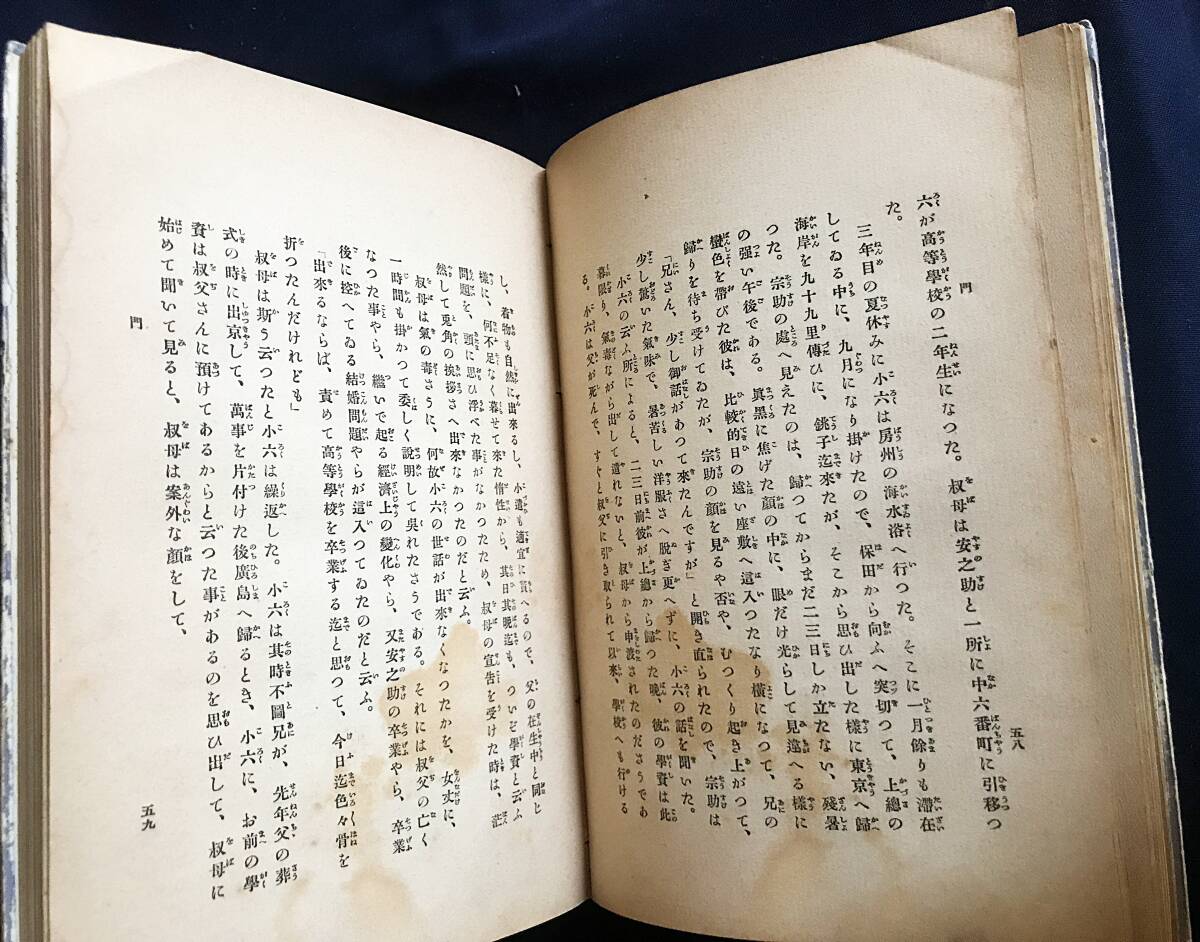 門
五八
六が高等學校の二年生になつた。叔母は安之助と一所に中六番町に引移つ
た。
三年目の夏休みに小六は房州の海水浴へ行つた。そこに一月餘りも滯在
してゐる中に、九月になり掛けたので、保田から向ふへ突切つて、上總の
海岸を九十九里傳ひに、銚子迄來たが、そこから思ひ出した樣に東京へ歸
つた。宗助の處へ見えたのは、歸つてからまだ二三日しか立たない、殘暑
の强い午後である。眞黑に焦げた顏の中に、眼だけ光らして見違へる樣に
蠻色を帶びた彼は、比較的日の遠い座敷へ這入つたなり橫になつて、兄の
歸りを待ち受けてゐたが、宗助の顏を見るや否や、むつくり起き上がつて、
「兄さん、少し御話があつて來たんですが」と開き直られたので、宗助は
少し驚いた氣味で、暑苦しい洋服さへ脫ぎ更へずに、小六の話を聞いた。
小六の云ふ所によると、二三日前彼が上總から歸つた晚、彼の學資は此
暮限り、氣毒ながら出して遣れないと、叔母から申渡されたのださうであ
る。小六は父が死んで、すぐと叔父に引き取られて以來、學校へも行ける
し、着物も自然に出來るし、小遣も適宜に貰へるので、父の在生中と同じ
樣に、何不足なく暮せて來た惰性から、其日其晚迄も、ついぞ學資と云ふ
問題を、頭に思ひ浮べた事がなかつたため、叔母の宣告を受けた時は、茫
然して兎角の挨拶さへ出來なかつたのだと云ふ。
叔母は氣の毒さうに、何故小六の世話が出來なくなつたかを、女丈に、
一時間も掛かつて委しく說明して吳れたさうである。それには叔父の亡く
なつた事やら、繼いで起る經濟上の變化やら、又安之助の卒業やら、卒業
後に控へてゐる結婚問題やらが這入つてゐたのだと云ふ。
「出來るならば、責めて高等學校を卒業する迄と思つて、今日迄色々骨を
折つたんだけれども」
叔母は斯う云つたと小六は繰返した。小六は其時不圖兄が、先年父の葬
式の時に出京して、萬事を片付けた後廣島へ歸るとき、小六に、お前の學
資は叔父さんに預けてあるからと云つた事があるのを思ひ出して、叔母に
始めて聞いて見ると、叔母は案外な顏をして、
門
五九